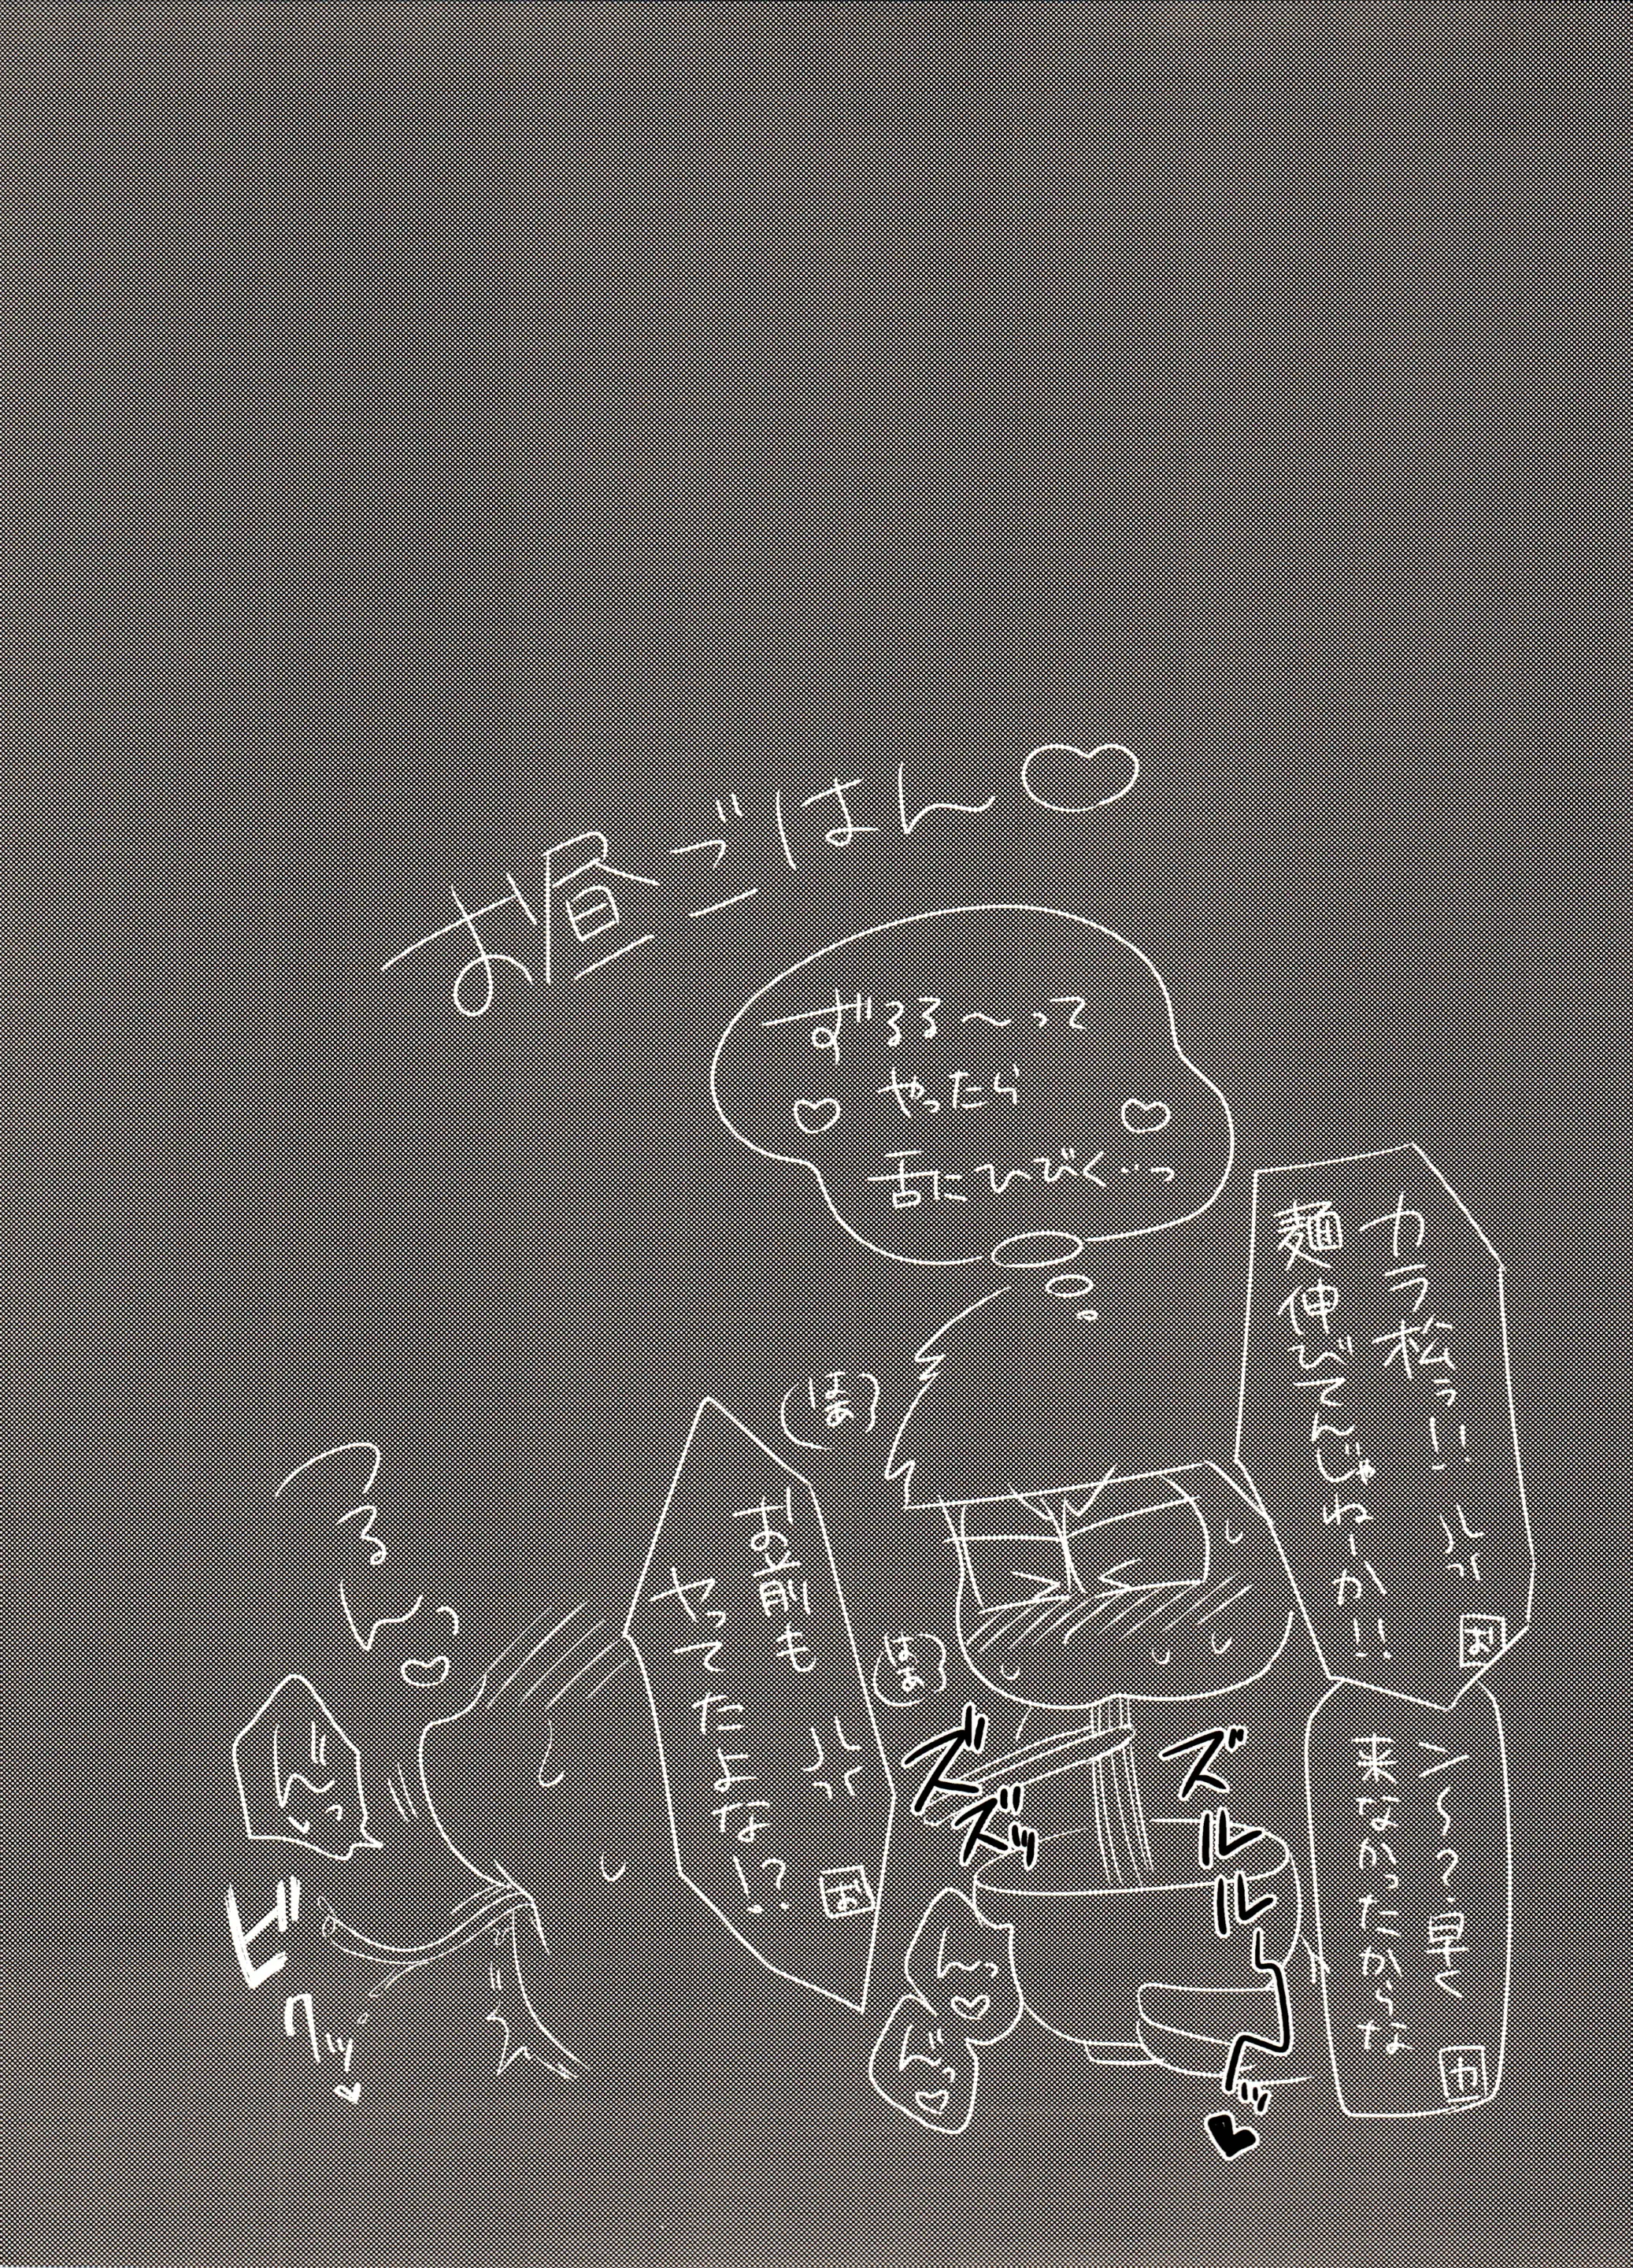 お昼ごはん♡
ずるる〜って
やったら
♡舌にひびく…っ♡
カラ松ぅ!!
麺伸びてんじゃねーか!!
お
ン〜?早く
来なかったからな
カ
はあ
お前も
ヤってたよな!?
お
はあ
ズズズッ
ズルルル〜ッ♥
んっ♡
んっ♡
つるん♡
んっ
ビクッ♡